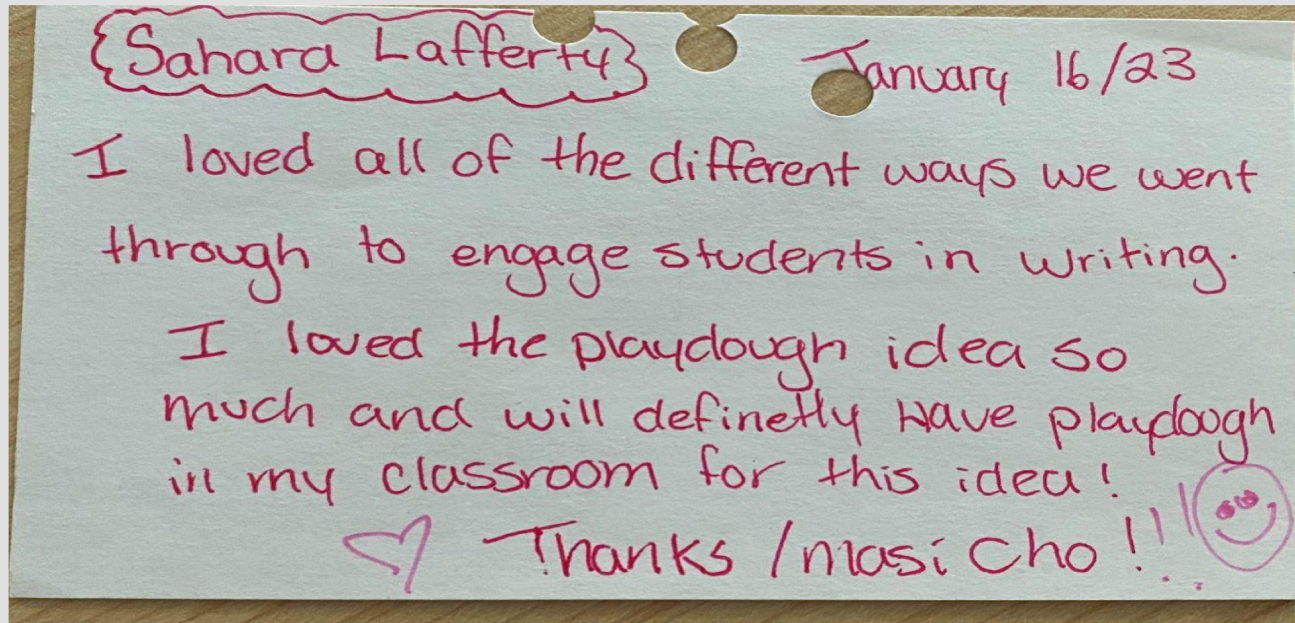 {Sahara Lafferty}
January 16/23
I loved all of the different ways we went
through to engage students in writing.
I loved the playdough idea so
much and will definetly have playdough
in my classroom for this idea!
Thanks /masi cho!!!